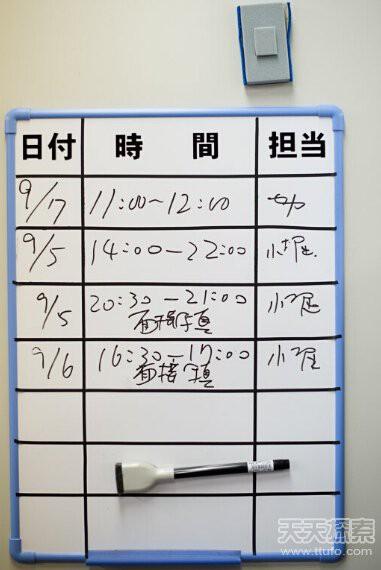 日付 時間 担当
9/17 11:00~12:00
9/5 14:00-22:00 小堀
9/5 20:30-21:00 小堀
面接写真
9/6 16:30-17:00 小堀
面接写真
天天探索
www.ttufo.com